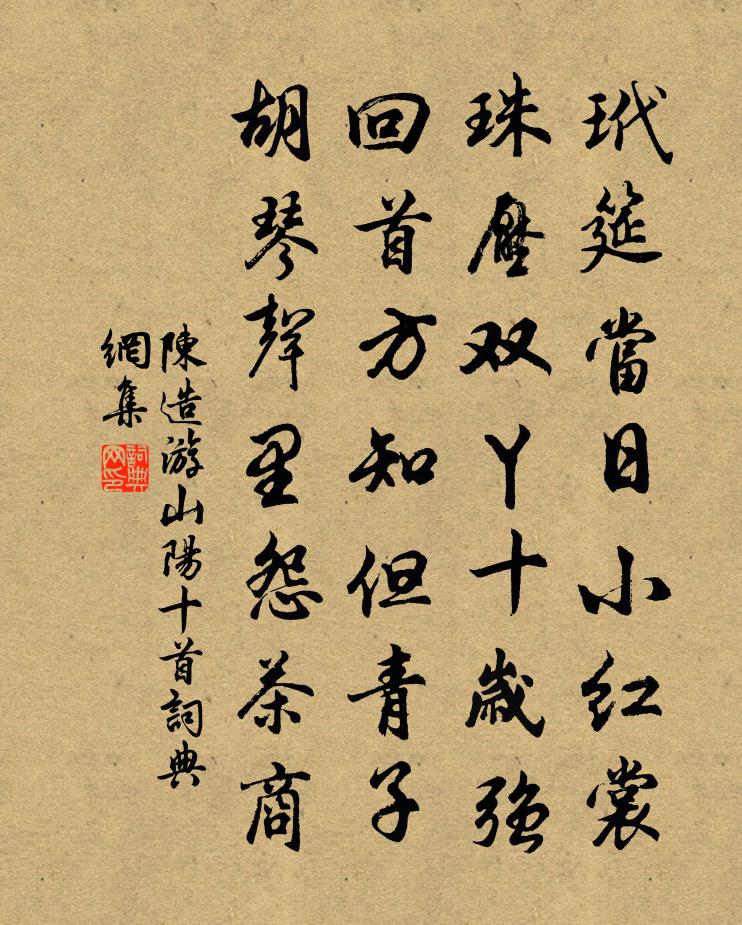 玳筵當日小红裳
珠壓双丫十歲強
回首方知但青子
胡琴聲里怨茶商
陳造游山陽十首詞典
網集
詞典
网印